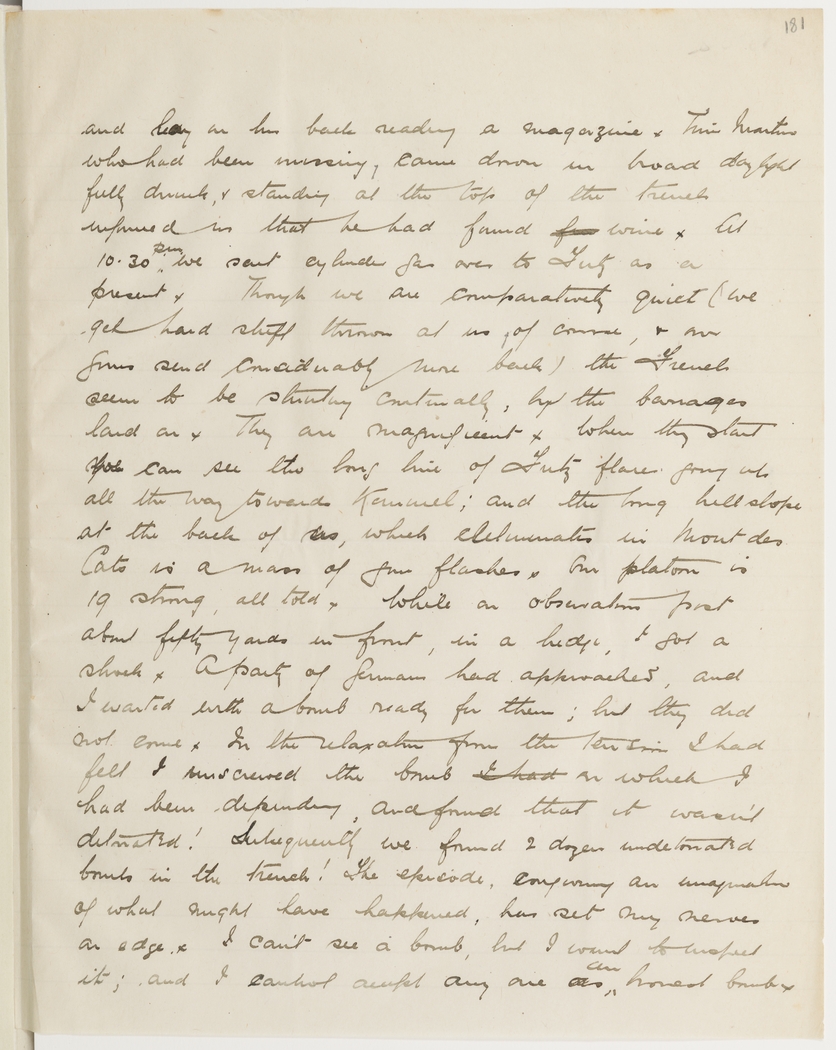 181
and lay on his back reading a magazine x Tim Martin
who had been missing, came down in broad daylight
fully drunk, & standing at the top of the trench
informed us that he had found wine x At
10.30 pm. we sent cylinder gas over to Fritz as a
present x Though we are comparatively quiet (we
get hard stuff thrown at us, of course, & our
guns send considerably more back) the French
seem to be strafing continually, by the barrages
laid on x They are magnificent x When they start
you can see the long line of Fritz flares going up
all the way towards Kemmel; and the long hill slope
at the back of us, which culminates in Mont des
Cats is a mass of gun flashes x Our platoon is
19 strong, all told x While on observation post
about fifty yards in front, in a hedge, I got a
shock x A party of Germans had approached, and
I waited with a bomb ready for them; but they did
not come x In the relaxation from the tension I had
felt I unscrewed the bomb I had on which I
had been depending, and found that it wasn't
detonated! Subsequently we found 2 dozen undetonated
bombs in the trench! The episode, conjuring an imagination
of what might have happened, has set my nerves
on edge x I can't see a bomb, but I want to inspect
it; and I cannot accept any one as an honest bomb x